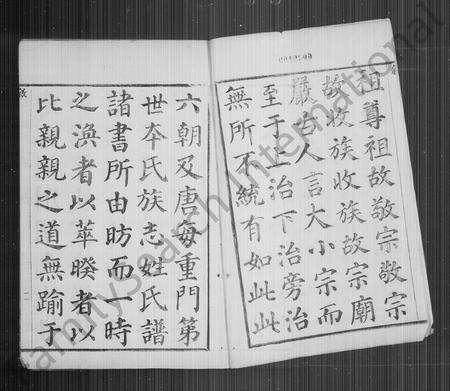 且尊祖故敬宗敬宗
故收族收族故宗廟
嚴古人言大小宗而
至于上治下治旁治
無所不統有如此此
六朝及唐每重門第
世夲氏族志姓氏譜
諸書所由昉而一時
之渙者以萃暌者以
比親親之道無踰于
FamilySearch International